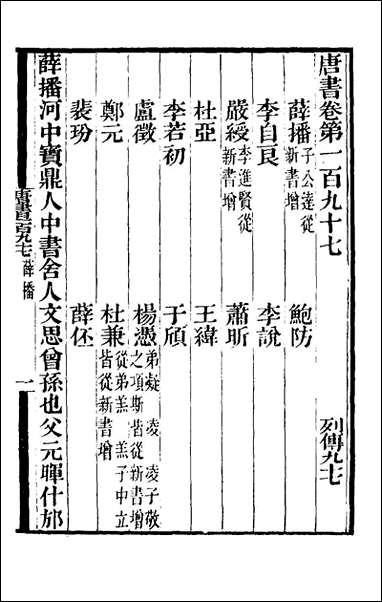 唐書卷第一百九十七 列傳九十七
薛播 子公達從新書增 鮑防
李自良 李說
嚴綬 李進賢從新書增 蕭昕
杜亞 王緯
李若初 于頎
盧徵 楊憑 弟凝 凌 凌子敬之項斯皆從新書增
鄭元 杜兼 從弟羔 羔子中立皆從新書增
裴玢 薛伾
薛播河中寶鼎人中書舍人文思曾孫也父元暉什邡
唐書一百九七 薛播 一